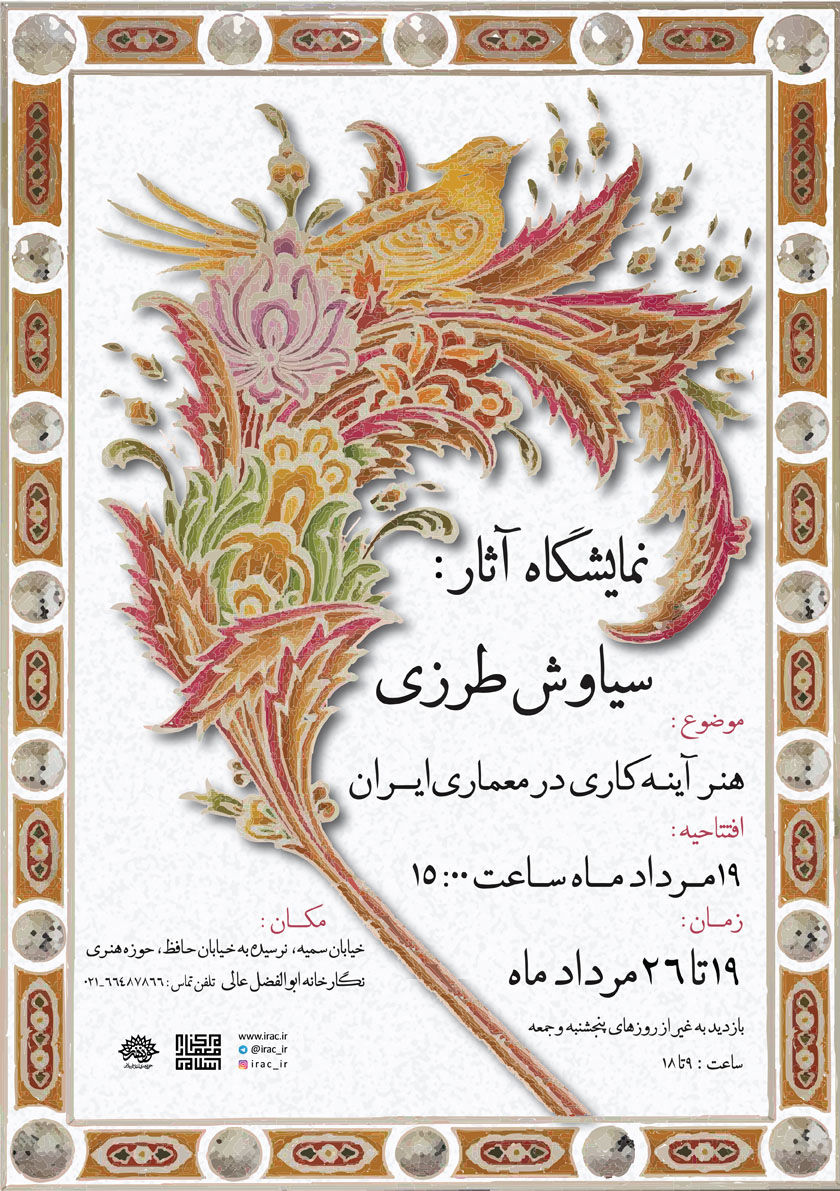 نمایشگاه آثار:
سیاوش طرزی
موضوع:
هنر آینه‌کاری در معماری ایران
افتتاحیه:
۱۹ مرداد ماه ساعت ۱۵:۰۰
زمان:
۱۹ تا ۲۶ مرداد ماه
بازدید به غیر از روزهای پنجشنبه و جمعه
ساعت : ۹ تا ۱۸
مکان:
خیابان سمیه، نرسیده به خیابان حافظ، حوزه هنری
نگارخانه ابوالفضل عالی تلفن تماس: ۶۶۴۸۷۸۶۶-۰۲۱
www.irac.ir
@irac_ir
irac_ir
مرکز معماری اسلامی